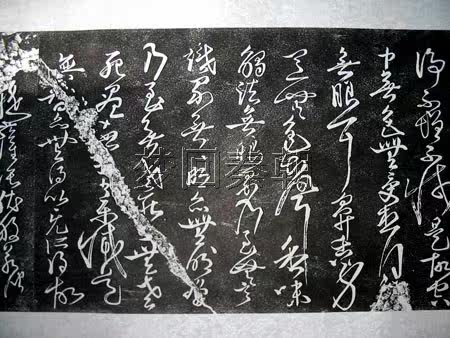 淨不增不減是故空
中無色無受想行
無眼耳鼻舌身
意無色聲香味
觸法無眼界乃至無意
識界無無明亦無無明盡
乃至無老死亦無老
死盡無苦集滅道
無智亦無得以無所得故
提薩埵依般若
梦回秦朝